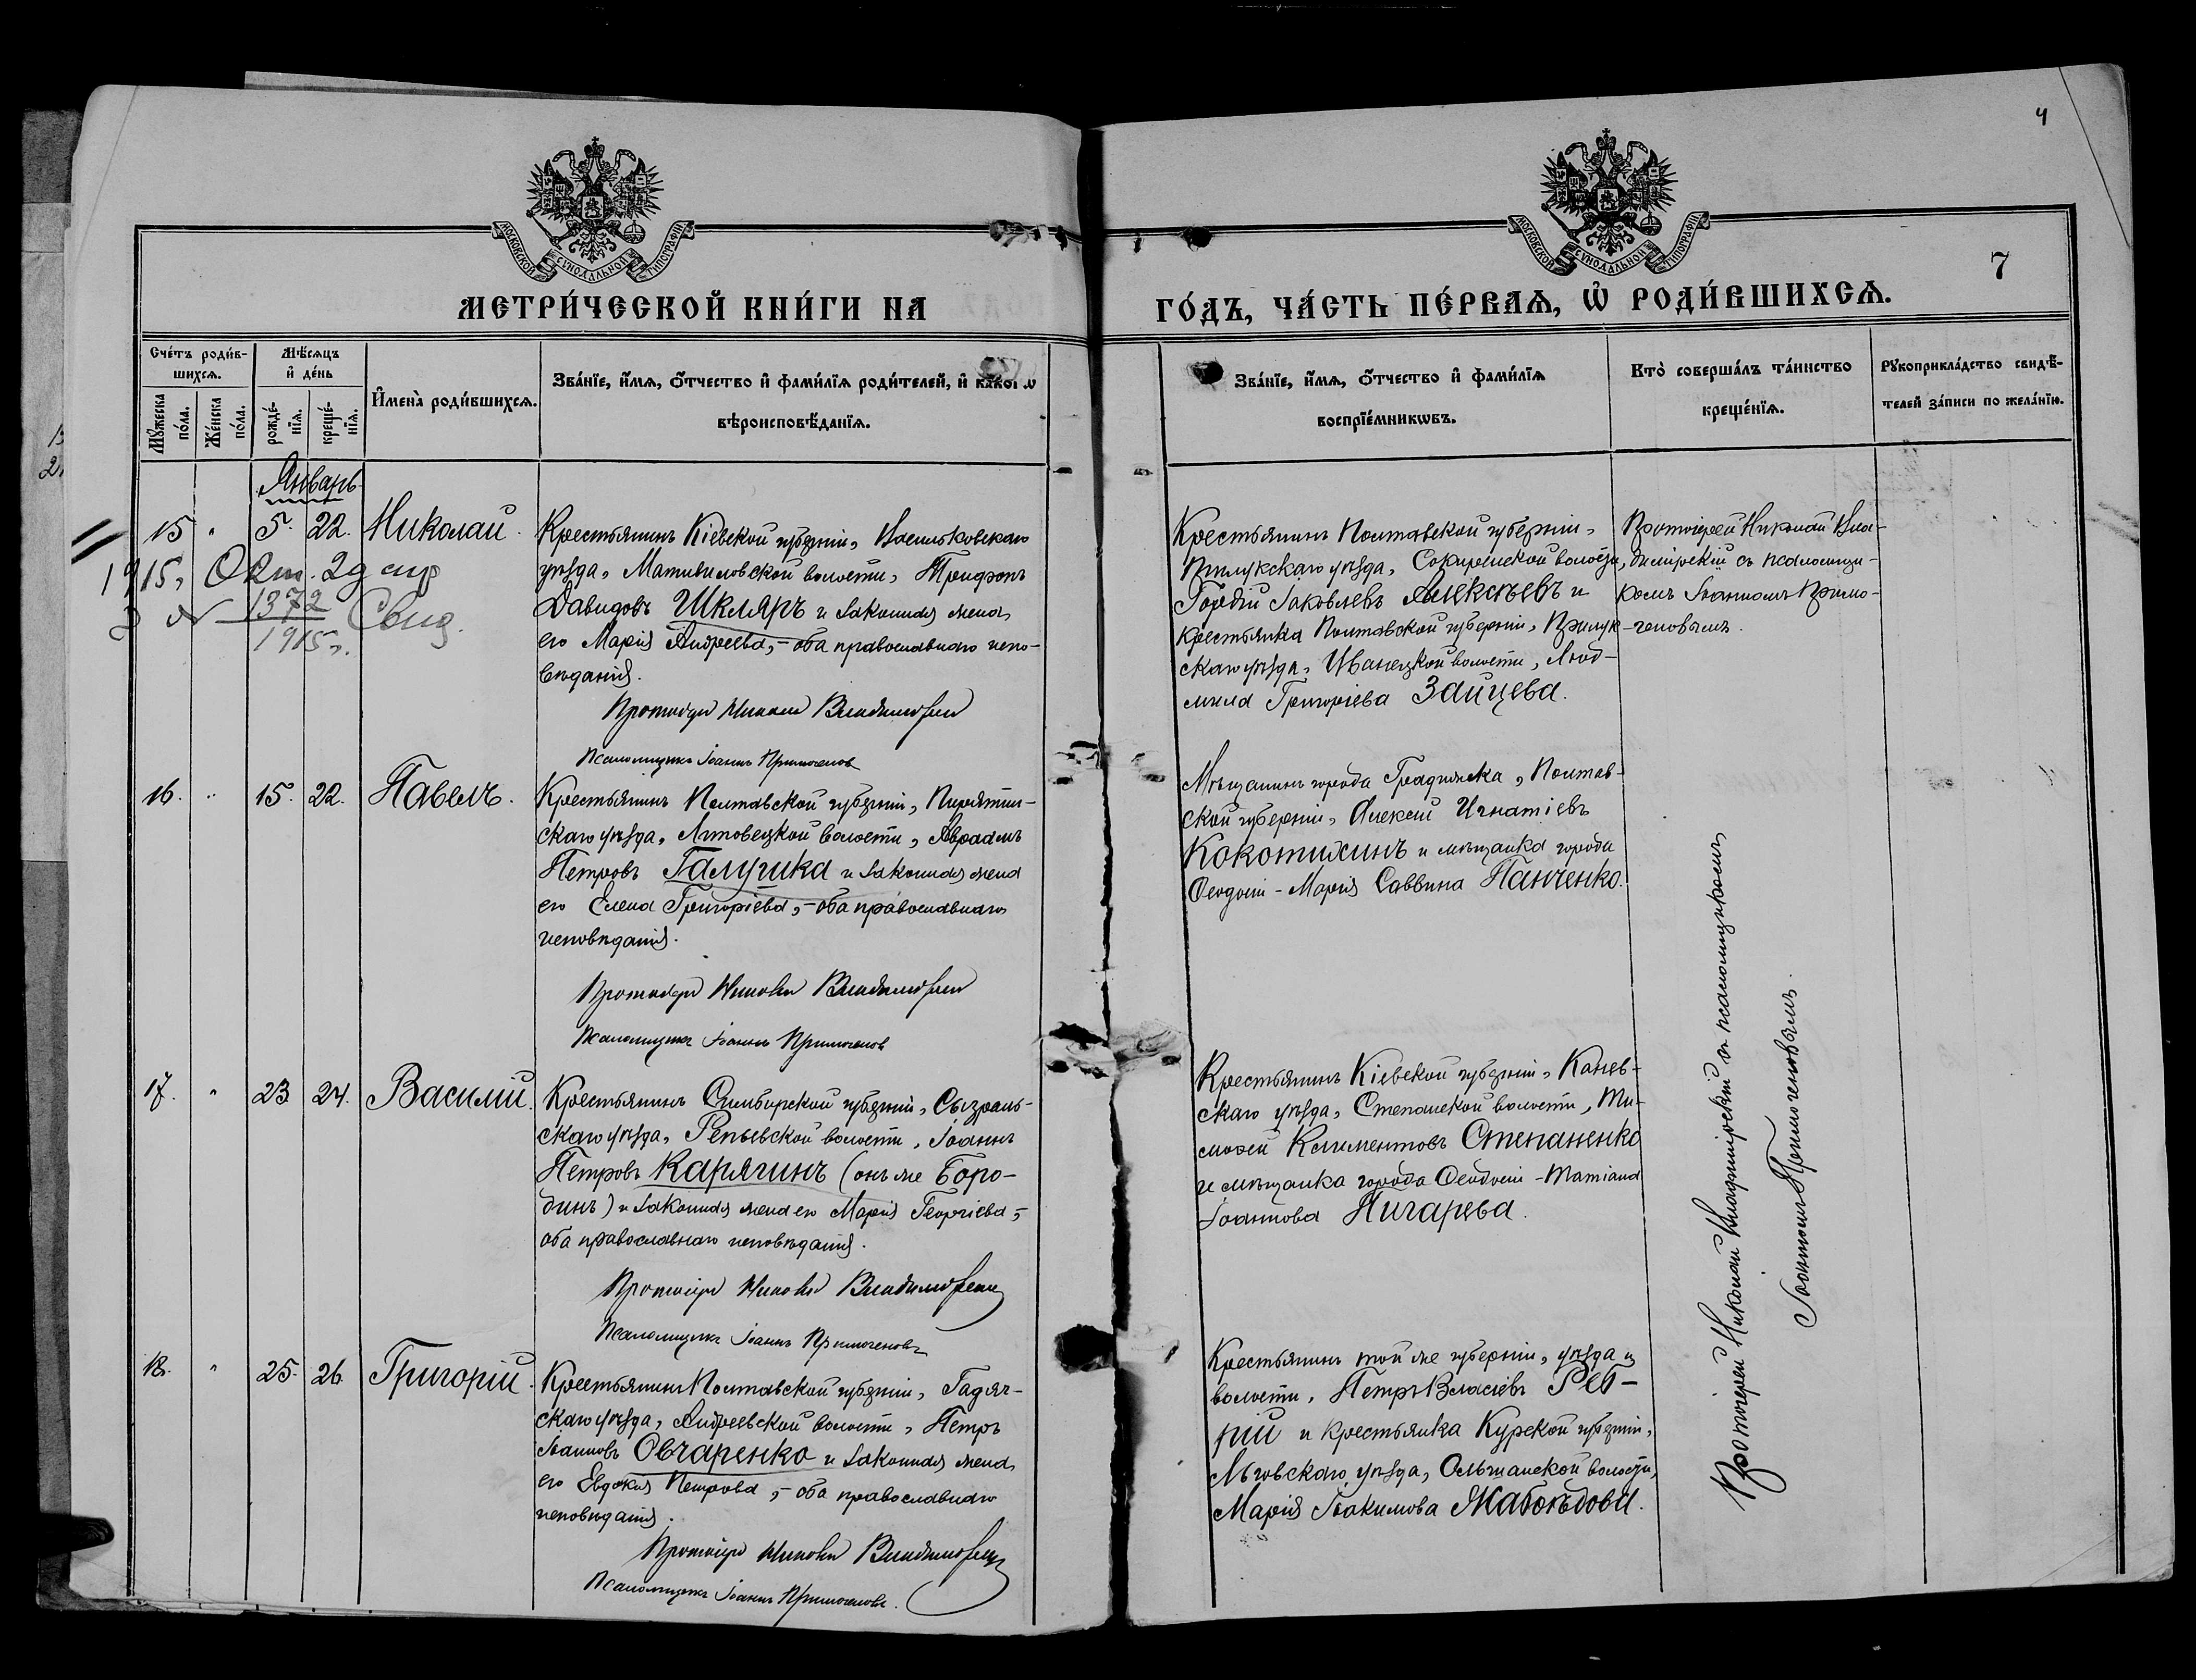 4
7
МОСКОВСКОЙ СѴНОДАЛЬНОЙ ТИПОГРАФІИ
МОСКОВСКОЙ СѴНОДАЛЬНОЙ ТИПОГРАФІИ
МЕТРИ́ЧЕСКОЙ КНИ́ГИ НА
ГО́ДЪ, ЧА́СТЬ ПЕ́РВАѦ, Ѡ҆ РОДИ́ВШИХСѦ.
Сче́тъ роди́в-
шихсѧ.
Мꙋ́жеска по́ла.
Же́нска по́ла.
Мѣ́сѧцъ
и҆ де́нь
рожде́-
нїѧ.
креще́-
нїѧ.
И҆мена̀ роди́вшихсѧ.
Зва́нїе, и҆́мѧ, ѻ҆́тчество и҆ фами́лїѧ роди́телей, и҆ како́гѡ
вѣроисповѣ́данїѧ.
Зва́нїе, и҆́мѧ, ѻ҆́тчество и҆ фами́лїѧ
воспрїе́мникѡвъ.
Кто̀ соверша́лъ та́инство
креще́нїѧ.
Рꙋкоприкла́дство свидѣ́-
телей за́писи по жела́нїю.
Январь
15 " 5. 22. Николай.
1915, Окт. 29
№ 1372
1915г.
Крестьянинъ Кіевской губерніи, Васильковскаго
уѣзда, Мативиловской волости, Трифонъ
Давидовъ Шкляръ и законная жена
его Марія Андреева, - оба православнаго испо-
вѣданія.
Протоіерей Николай Владимірскій
Псаломщикъ Іоаннъ Примогеновъ
Крестьянинъ Полтавской губерніи,
Прилукскаго уѣзда, Сокиренской волости,
Гордій Іаковлевъ Алексѣевъ и
крестьянка Полтавской губерніи, Прилук-
скаго уѣзда, Иванецкой волости, Люд-
мила Григоріева Зайцева.
Протоіерей Николай Вла-
димірскій съ псаломщи-
комъ Іоанномъ Примо-
геновымъ.
16. " 15. 22. Павелъ.
Крестьянинъ Полтавской губерніи, Пирятин-
скаго уѣзда, Яктовецкой волости, Авраамъ
Петровъ Галушка и законная жена
его Елена Григоріева, - оба православнаго
исповѣданія.
Протоіерей Николай Владимірскій
Псаломщикъ Іоаннъ Примогеновъ
Мѣщанинъ города Градижска, Полтав-
ской губерніи, Алексій Игнатіевъ
Кокотихинъ и мѣщанка города
Ѳеодосіи - Марія Саввина Панченко.
17. " 23 24. Василій.
Крестьянинъ Симбирской губерніи, Сызрань-
скаго уѣзда, Репьевской волости, Іоаннъ
Петровъ Карягинъ (онъ же Боро-
динъ) и законная жена его Марія Георгіева, -
оба православнаго исповѣданія.
Протоіерей Николай Владимірскій
Псаломщикъ Іоаннъ Примогеновъ
Крестьянинъ Кіевской губерніи, Канев-
скаго уѣзда, Степанской волости, Ти-
моѳей Климентовъ Степаненко
и мѣщанка города Ѳеодосіи - Татіана
Іоаннова Нигарева.
18. " 25. 26. Григорій.
Крестьянинъ Полтавской губерніи, Гадяч-
скаго уѣзда, Андреевской волости, Петръ
Іоанновъ Овчаренко и законная жена
его Евдокія Петрова, - оба православнаго
исповѣданія.
Протоіерей Николай Владимірскій
Псаломщикъ Іоаннъ Примогеновъ.
Крестьянинъ той же губерніи, уѣзда и
волости, Петръ Власіевъ Реб-
рій и крестьянка Курской губерніи,
Льговскаго уѣзда, Ольшанской волости,
Марія Іоакимова
Протоіерей Николай Владимірскій съ псаломщикомъ
Іоанномъ Примогеновымъ.